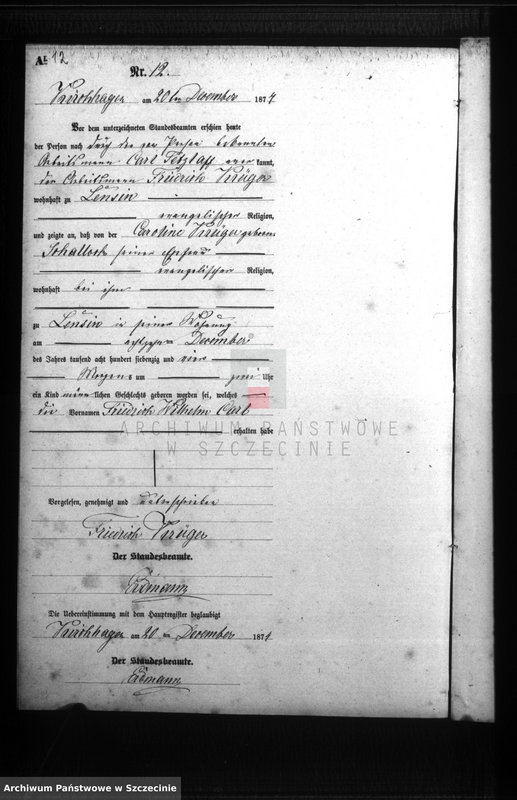 A¹ 12
Nr. 12.
Kirchhagen am 20 ten December 1874
Vor dem unterzeichneten Standesbeamten erschien heute
der Person nach durch den von Person bekannten
Arbeitsmann Carl Petzlaff aner kannt,
den Arbeitsmann Friedrich Krüger
wohnhaft zu Lensin
evangelischer Religion,
und zeigte an, daß von der Caroline Krüger geborene
Schallock seiner Ehefrau
evangelischer Religion,
wohnhaft bei ihm
zu Lensin in seiner Wohnung
am achtzehn December
des Jahres tausend acht hundert siebenzig und vier
Morgens um zwei Uhr
ein Kind männ lichen Geschlechts geboren worden sei, welches
die Vornamen Friedrich Wilhelm Carl
erhalten habe
ARCHIWUM PAŃSTWOWE
W SZCZECINIE
Vorgelesen, genehmigt und unterschrieben
Friedrich Krüger
Der Standesbeamte.
Erdmann
Die Uebereinstimmung mit dem Hauptregister beglaubigt
Kirchhagen am 20 ten December 1874
Der Standesbeamte.
Erdmann
Archiwum Państwowe w Szczecinie